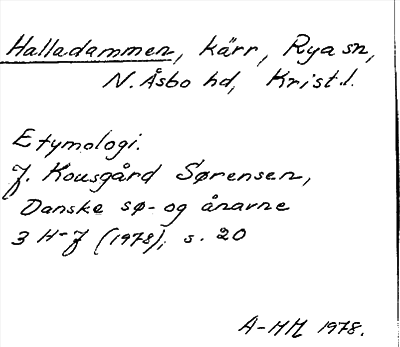 Halladammen, kärr, Rya sn,
N. Åsbo hd, Krist.l.
Etymologi.
J. Kousgård Sørensen,
Danske sø- og ånavne
3 H-J (1978), s. 20
A-HM 1978.